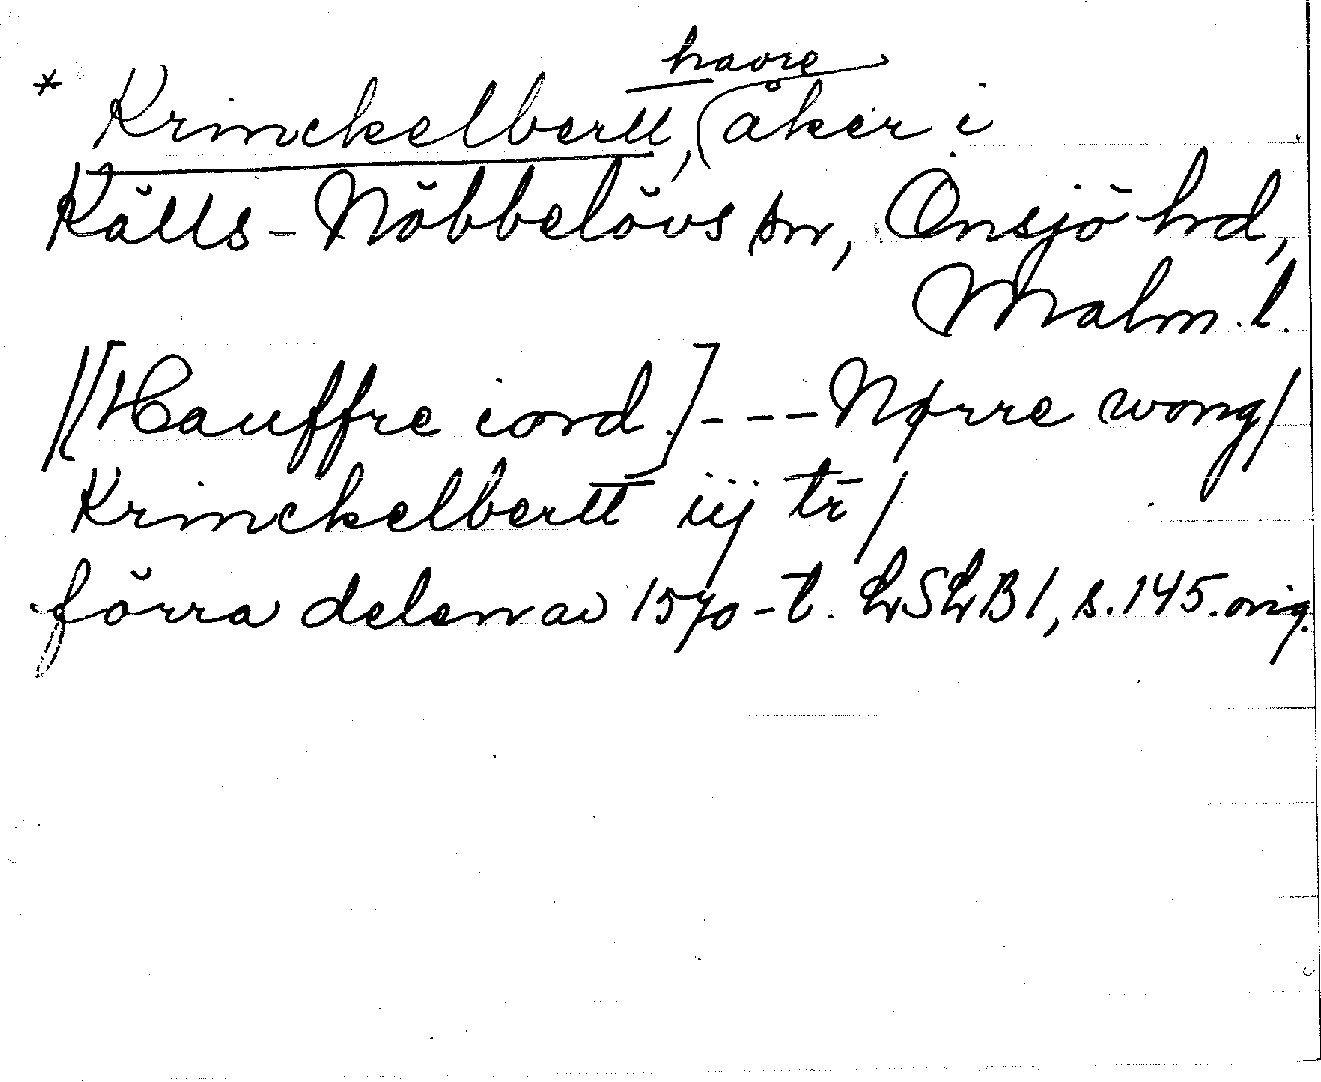 havre
* Krinckelbertt, (åker i
Källs-Nöbbelövs sn, Onsjö hd,
Malm. l.
/[Hauffre iord] - - - Nørre wong/
Krinckelbertt iij tr /
förra delen av 1570-t. LSLB 1, s. 145. orig.